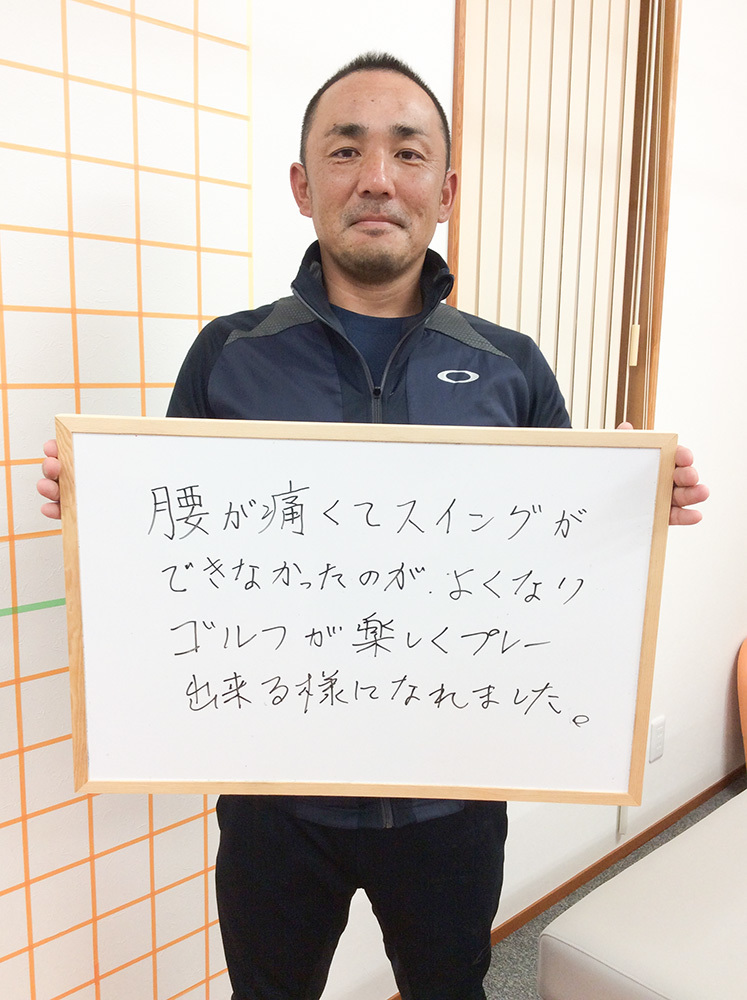 腰が痛くてスイングが
できなかったのが、よくなり
ゴルフが楽しくプレー
出来る様になれました。